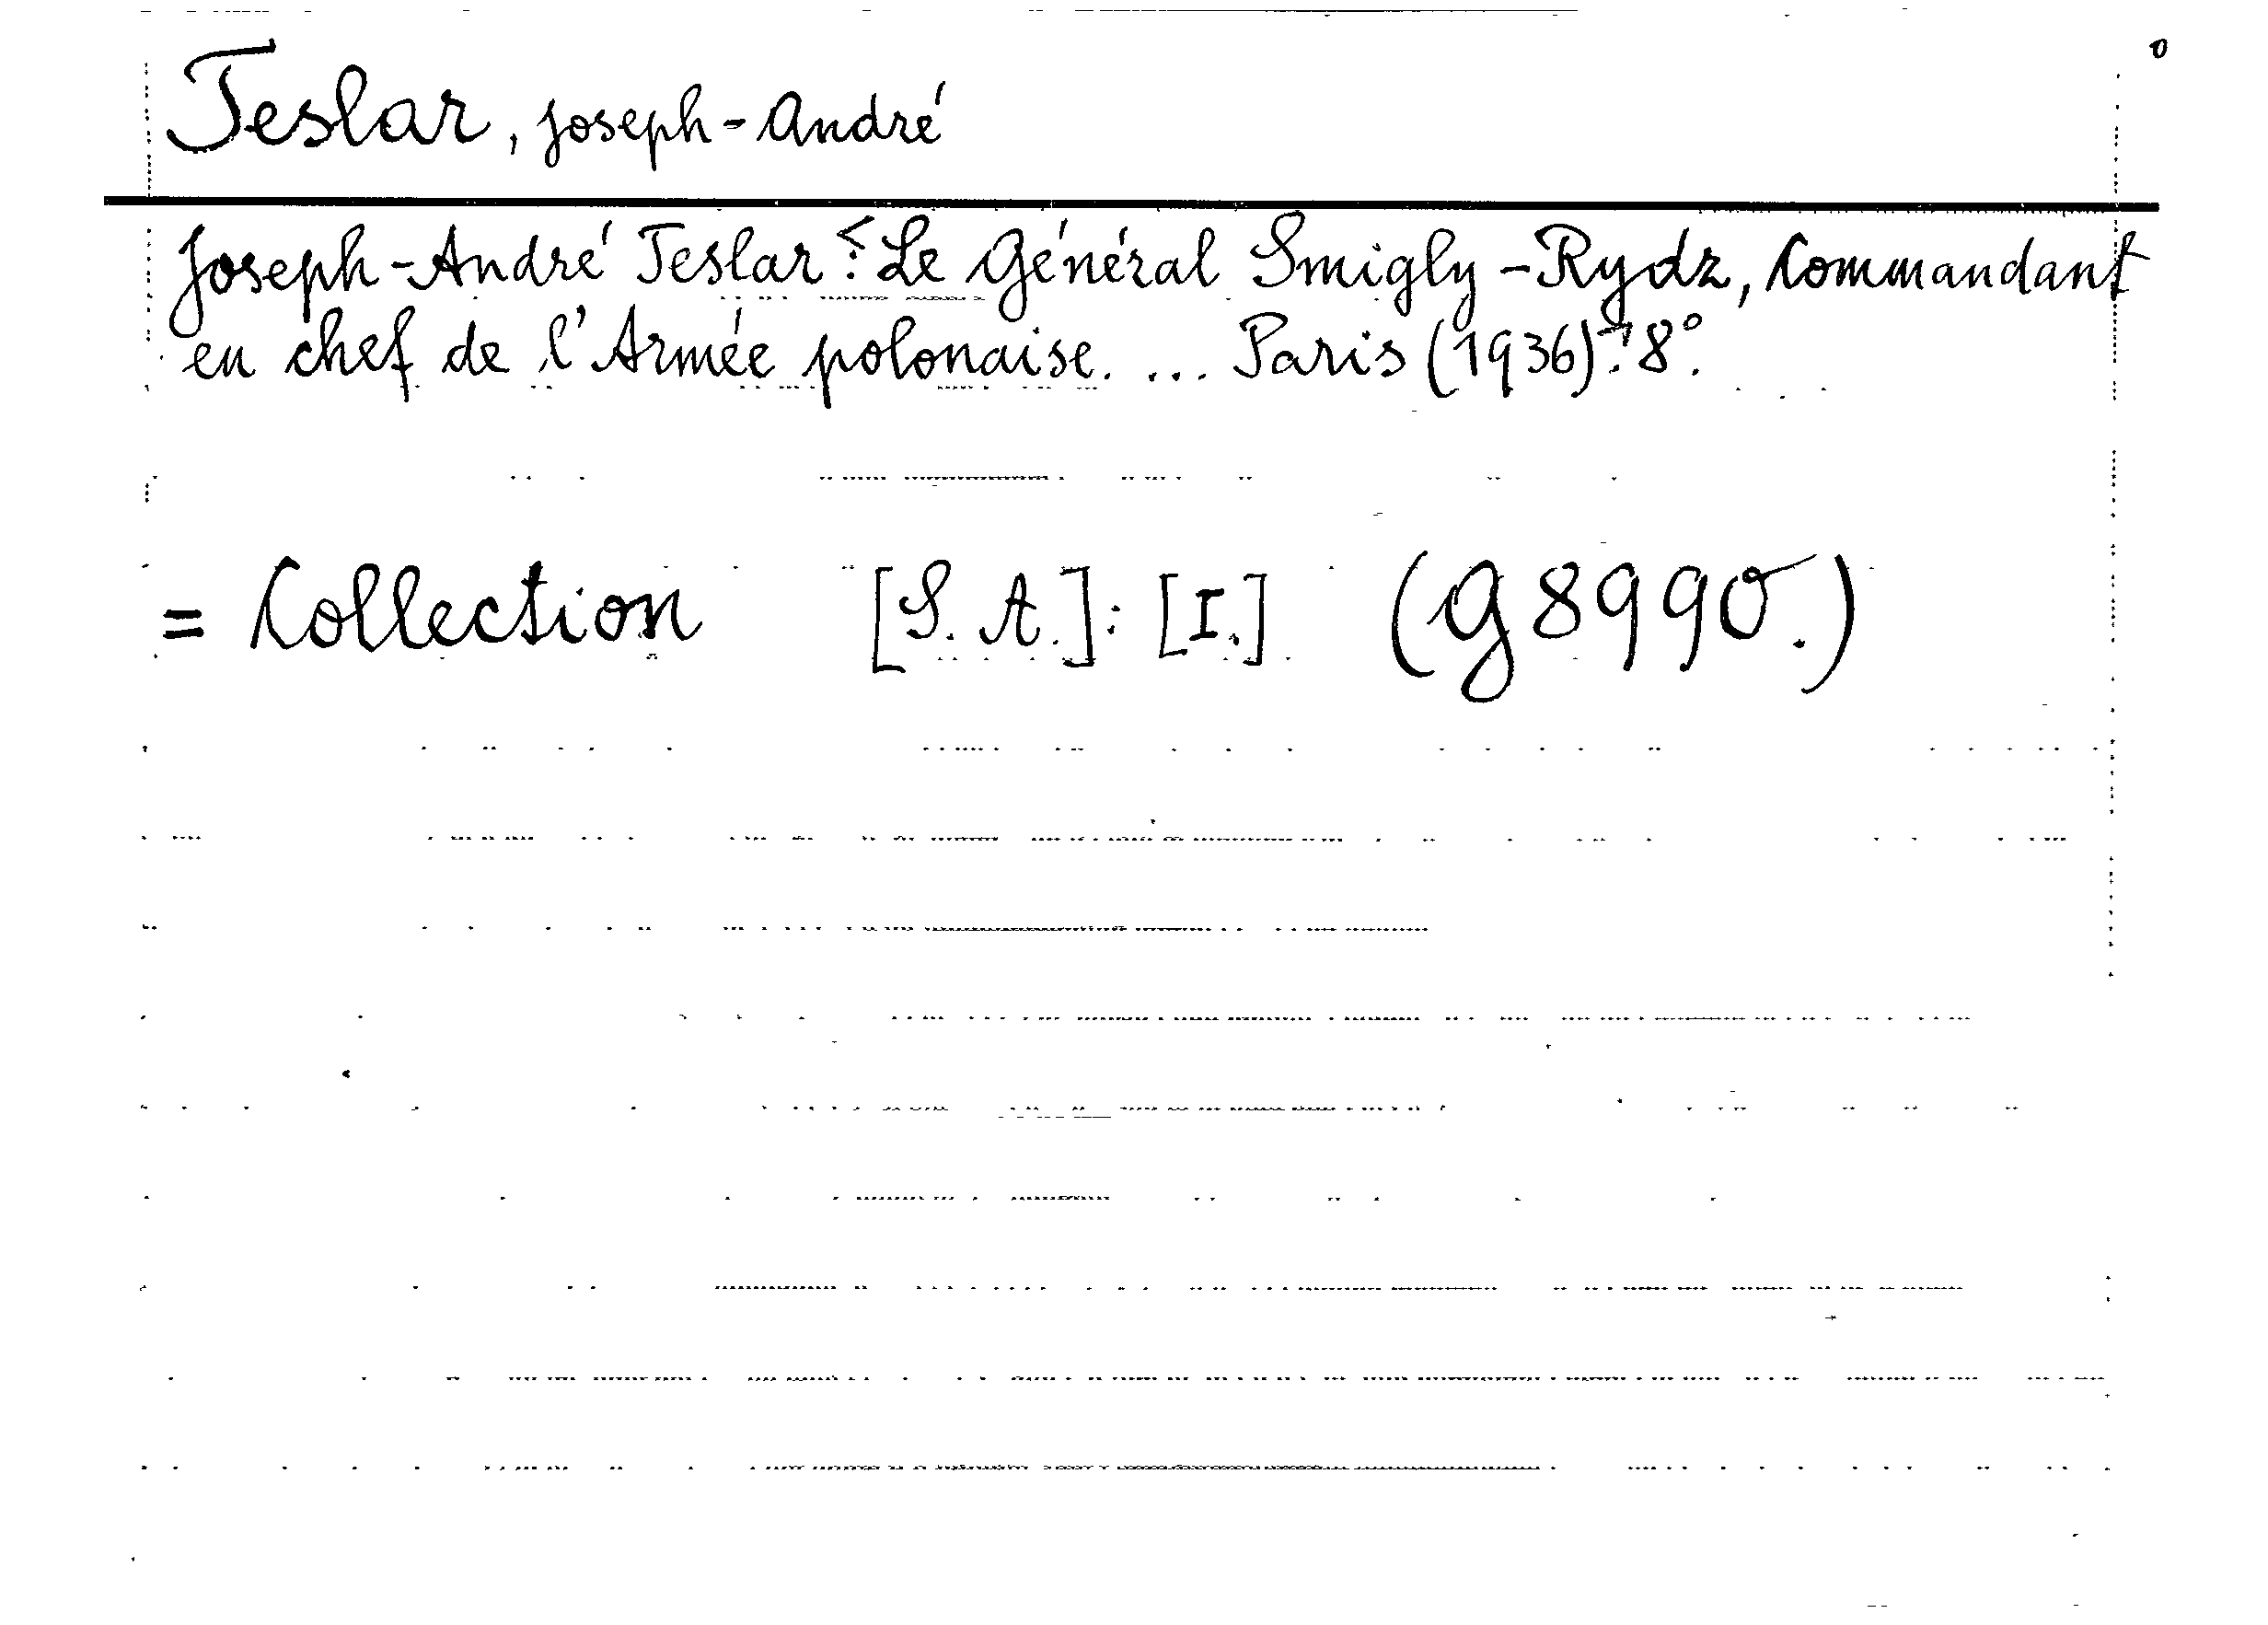 Teslar, Joseph-André
Joseph-André Teslar: Le Général Smigly-Rydz, Commandant
en chef de l'Armée polonaise. ... Paris (1936): 8°.
= Collection [S. A.]: [I.] (G 8990.)